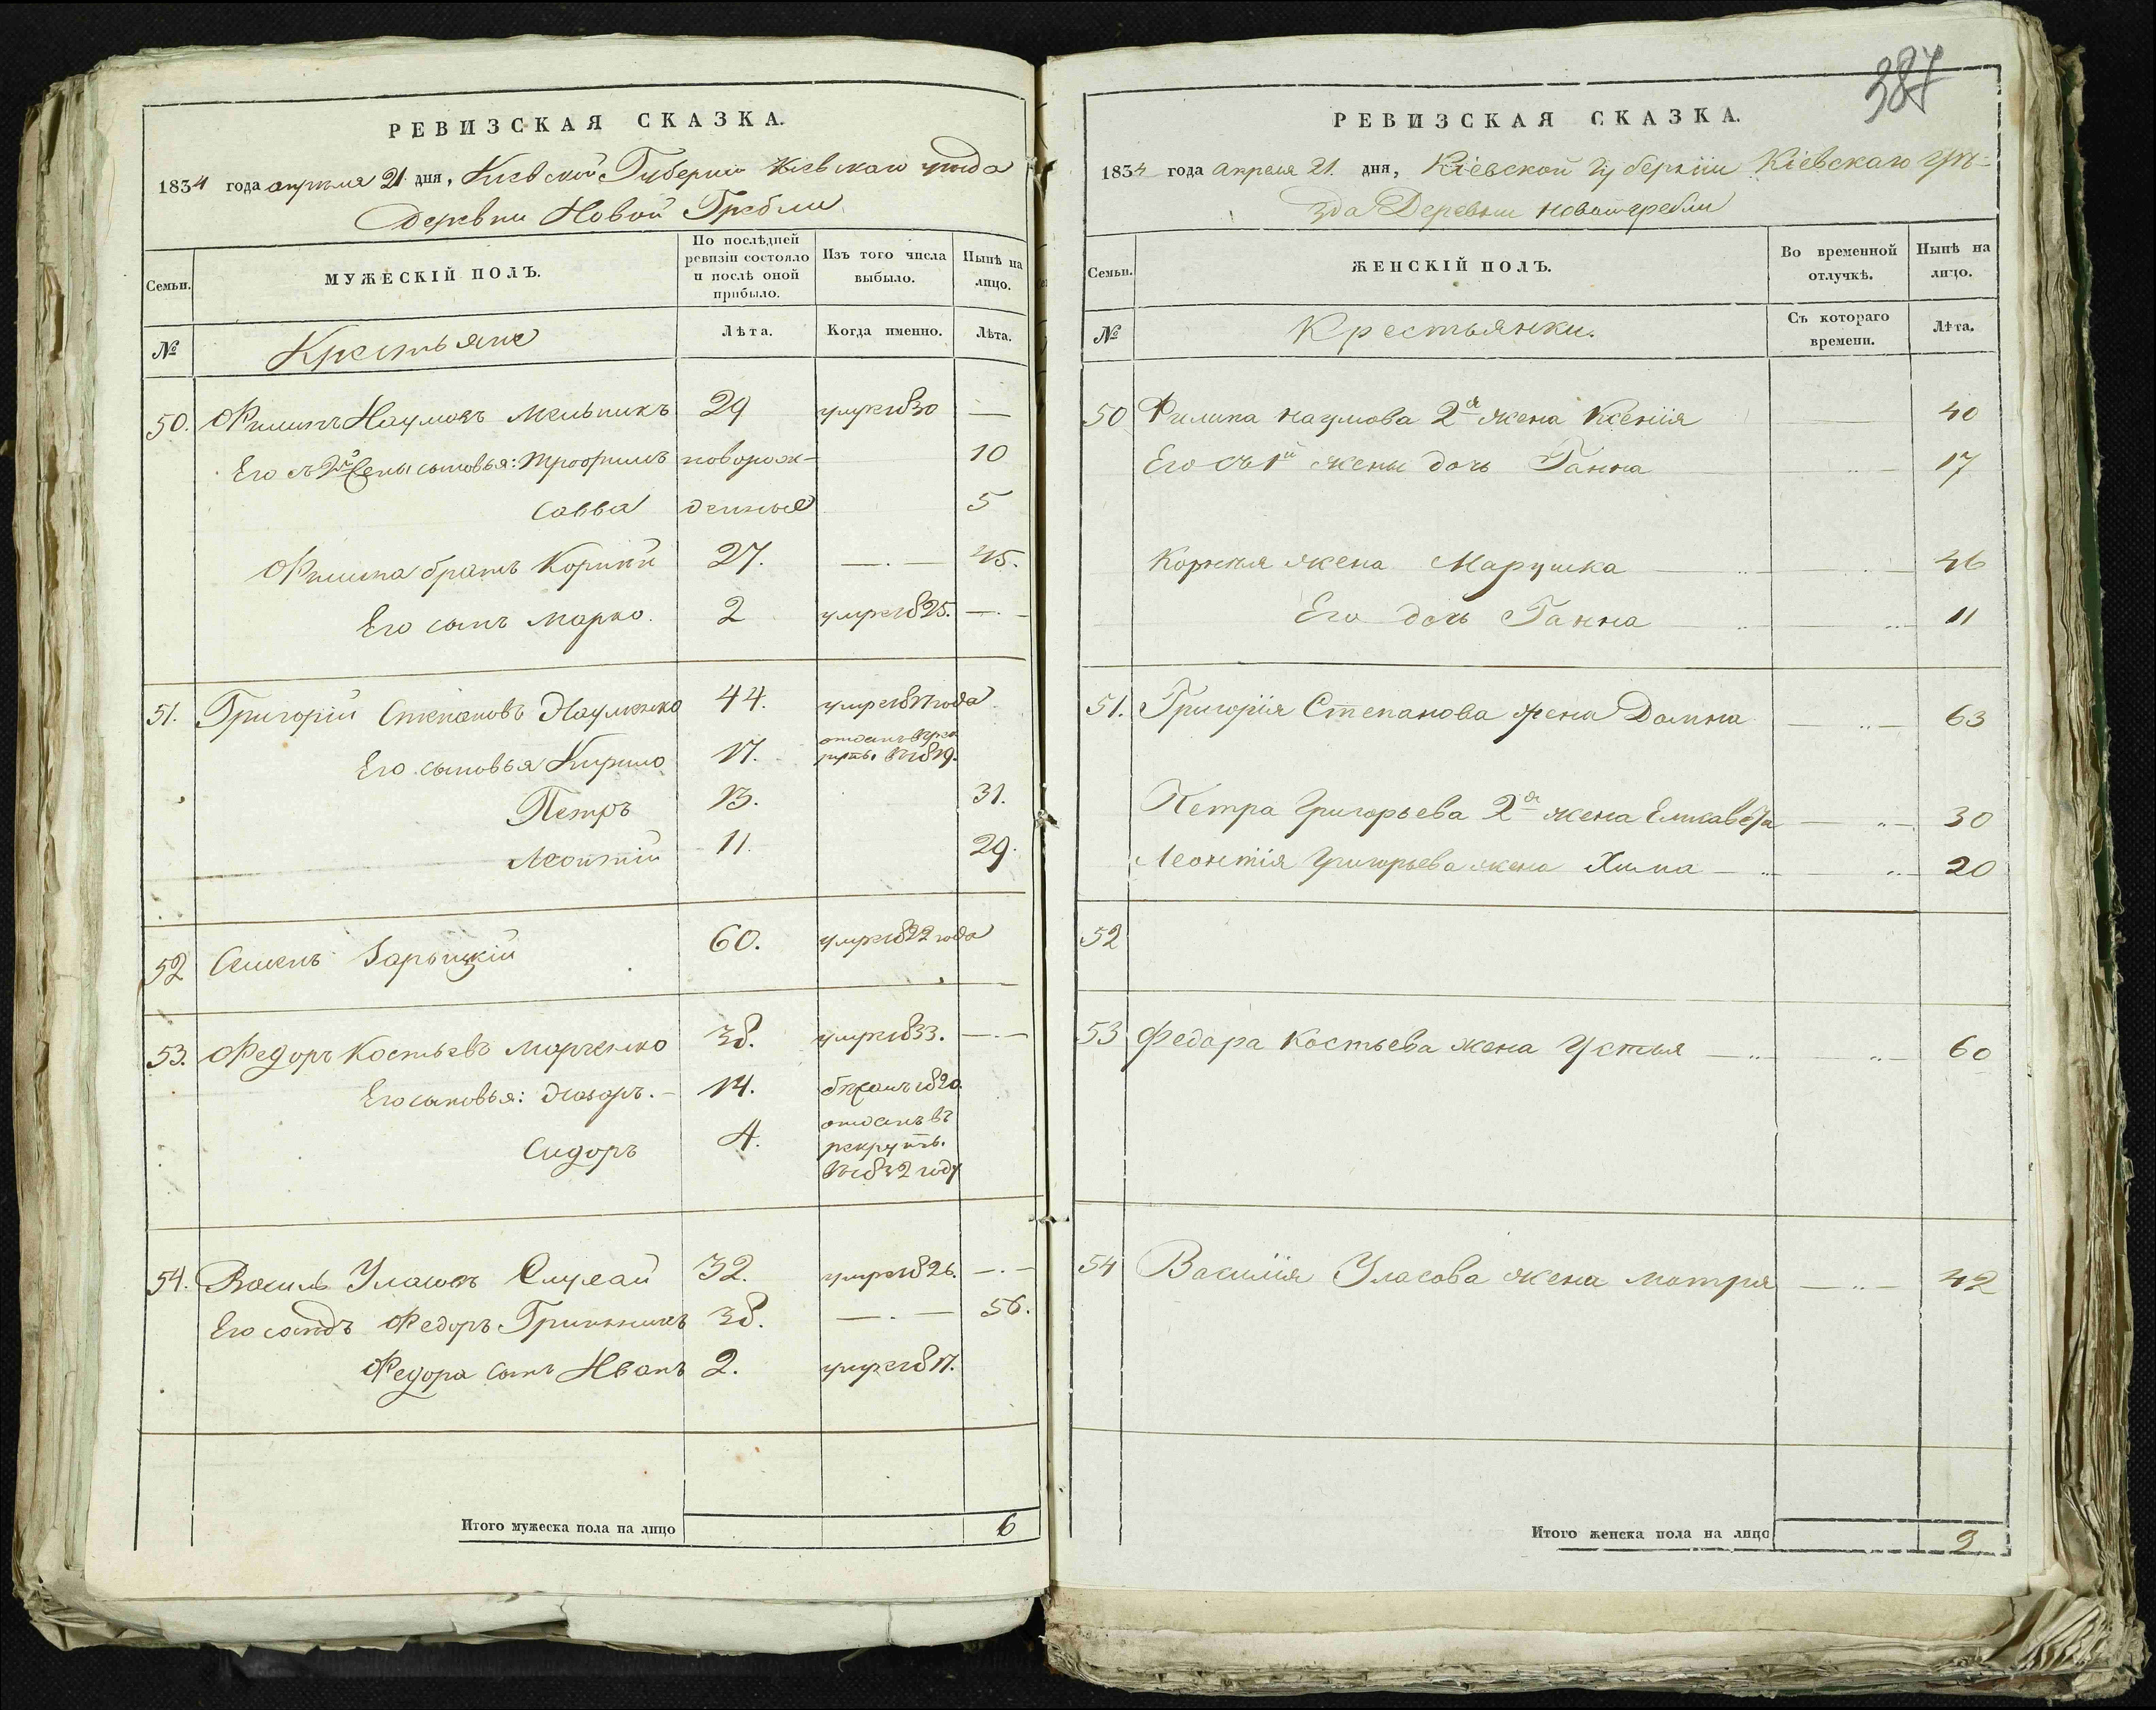 РЕВИЗСКАЯ СКАЗКА.
1834 года апреля 21 дня, Киевской Губернiи Кiевскаго уѣзда
Деревни Новой Гребли
Семьи.
МУЖЕСКІЙ ПОЛЪ.
По послѣдней ревизіи состояло и послѣ оной прибыло.
Изъ того числа выбыло.
Нынѣ на лицо.
№
Крестьяне
Лѣта.
Когда именно.
Лѣта.
50. Филипъ Наумовъ Мельникъ 29 умре 1830 —
Его съ 2й жены сыновья: Трофимъ новорож- 10
Савва денные 5
Филипа братъ Корнiй 27. — . — 45.
Его сынъ Марко. 2 умре 1825. — . —
51. Григорiй Степановъ Науменко 44. умре 1817 года
Его сыновья Кирило 17. отданъ в рек
рутъ. въ 1819.
Петръ 13. 31.
Леонтiй 11. 29.
52 Семенъ Зарыцкiй 60. умре 1822 года
53. Федоръ Костьевъ Марченко 38. умре 1833. — . —
Его сыновья: Назаръ. — 14. бѣжалъ 1820.
Сидоръ 4. отданъ въ
рекрутъ.
въ 1832 году
54. Василь Уласовъ Слухай 32. умре 1826. — . —
Его сосѣдъ Федоръ Гриньникъ 38. — . — 56.
Федора сынъ Иванъ 2. умре 1817.
Итого мужеска пола на лицо 6
387
РЕВИЗСКАЯ СКАЗКА.
1834 года апреля 21. дня, Кіевской Губернiи Кіевскаго Уѣ=
зда Деревни Новойгребли
Семьи.
ЖЕНСКІЙ ПОЛЪ.
Во временной отлучкѣ.
Нынѣ на лицо.
№
Крестьянки.
Съ котораго времени.
Лѣта.
50 Филипа Наумова 2я жена Ксенiя 40
Его съ 1й жены дочь Ганна 17
Корнiя жена Марушка 46
Его дочь Ганна 11
51. Григорiя Степанова жена Домна 63
Петра Григорьева 2я жена Елисавета 30
Леонтiя Григорьева жена Хима 20
52
53 Федора Костьева жена Устья 60
54 Василiя Уласова жена Мотря 42
Итого женска пола на лицо 9